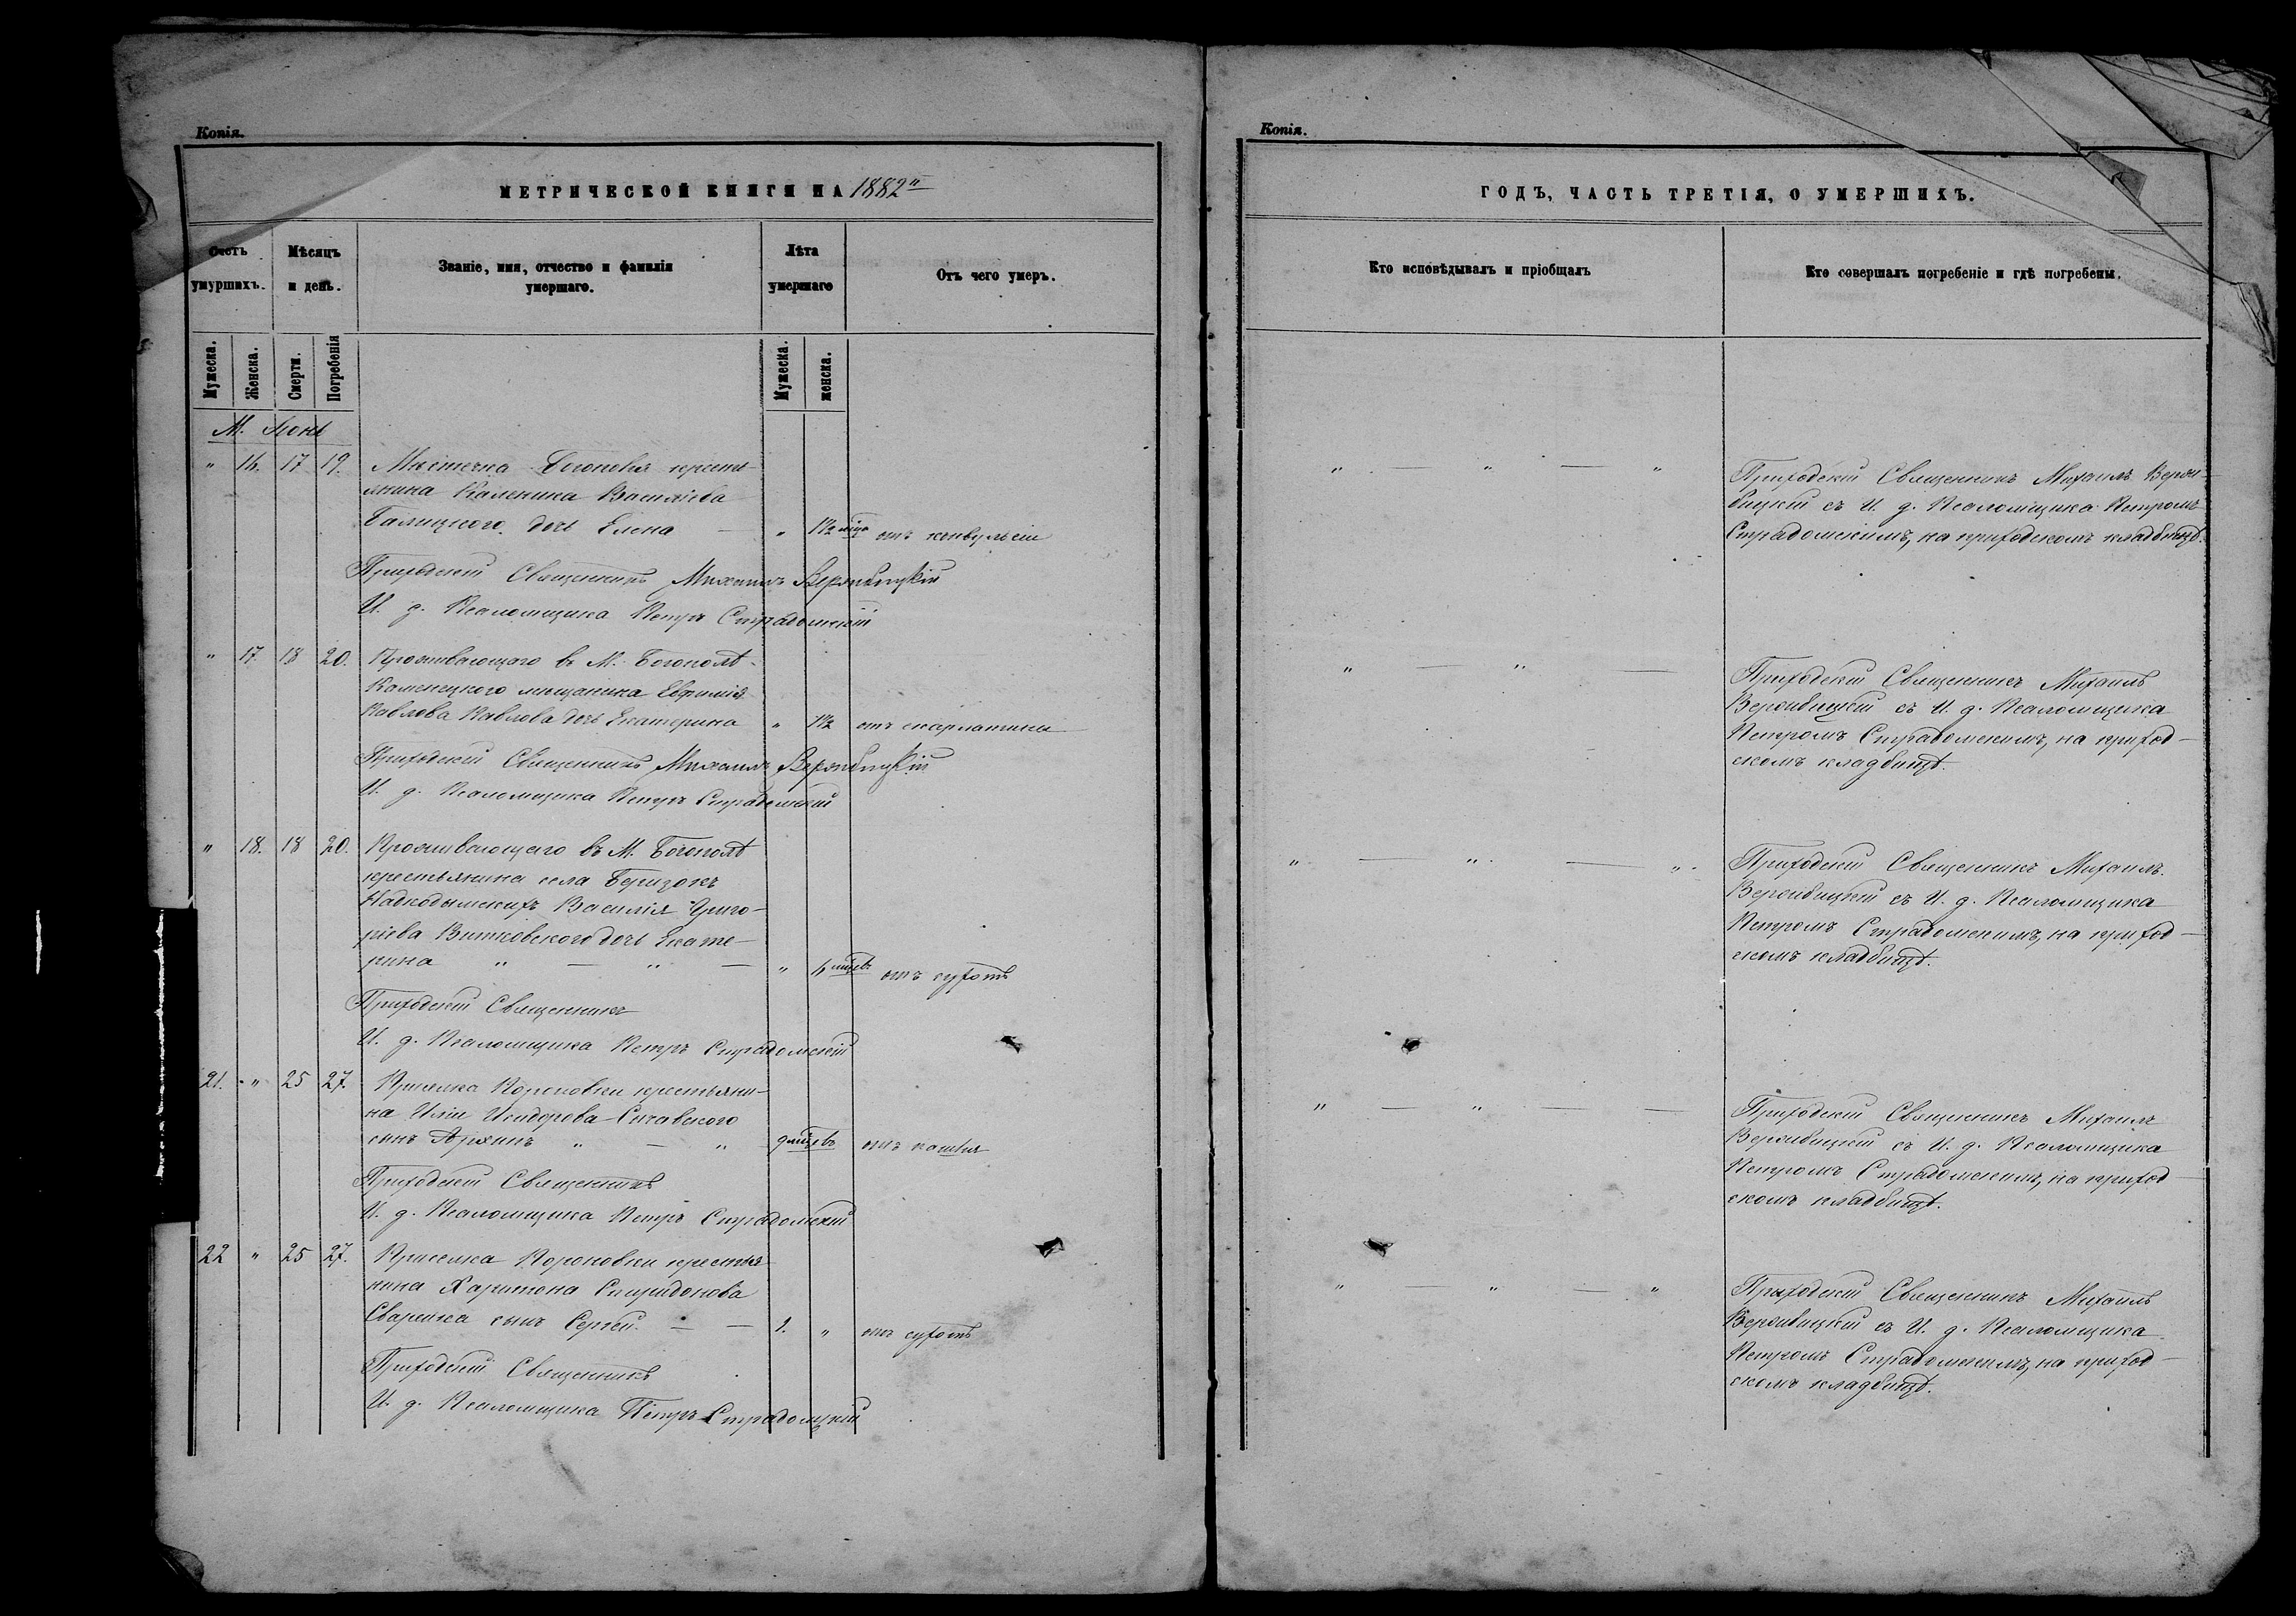 Копія.
МЕТРИЧЕСКОЙ КНИГИ НА 1882й
Счетъ умуршихъ.
Мѣсяцъ и день.
Званіе, имя, отчество и фамилія умершаго.
Лѣта умершаго
Отъ чего умеръ.
Мужеска.
Женска.
Смерти.
Погребенія
Мужеска.
женска.
М. Іюнь
" 16. 17 19. Мѣстечка Богополя кресть-
янина Каленика Васильева
Галицкого дочь Елена — " 1½ отъ конвульсіи
Приходскій Священникъ Михаилъ Вержбицкій
И. д. Псаломщика Петръ Страдомскій
" 17. 18 20. Проживающаго въ М. Богополѣ
Каменецкого мѣщанина Евфимія
Павлова Павлова дочь Екатерина " 1½ отъ скарлатины
Приходскій Священникъ Михаилъ Вержбицкій
И. д. Псаломщика Петръ Страдомскій
" 18. 18 20. Проживающаго въ М. Богополѣ
крестьянина села Беризокъ
Надкодымскихъ Василія Григо-
ріева Витковского дочь Екате-
рина " — " — " мѣсъ отъ сухотъ
Приходскій Священникъ
И. д. Псаломщика Петръ Страдомскій
21. " 25 27. Приселка Короновки крестьяни-
на Иліи Исидорова
сынъ " — " 9 мѣсъ отъ кашля
Приходскій Священникъ
И. д. Псаломщика Петръ Страдомскій
22 " 25 27. Приселка Короновки крестья-
нина Харитона Спиридонова
сынъ Сергій. — — 1. " отъ сухотъ
Приходскій Священникъ
И. д. Псаломщика Петръ Страдомскій
Копія.
ГОДЪ, ЧАСТЬ ТРЕТІЯ, О УМЕРШИХЪ.
Кто исповѣдывалъ и пріобщалъ
Кто совершалъ погребеніе и гдѣ погребены.
" " — " Приходскій Священникъ Михаилъ Верж-
бицкій съ И. д. Псаломщика Петромъ
Страдомскимъ, на приходскомъ кладбищѣ.
" — " — Приходскій Священникъ Михаилъ
Вержбицкій съ И. д. Псаломщика
Петромъ Страдомскимъ, на приход-
скомъ кладбищѣ.
" — " — " Приходскій Священникъ Михаилъ
Вержбицкій съ И. д. Псаломщика
Петромъ Страдомскимъ, на приход-
скомъ кладбищѣ.
" — " — — Приходскій Священникъ Михаилъ
Вержбицкій съ И. д. Псаломщика
Петромъ Страдомскимъ, на приход-
скомъ кладбищѣ.
" — " — " Приходскій Священникъ Михаилъ
Вержбицкій съ И. д. Псаломщика
Петромъ Страдомскимъ, на приход-
скомъ кладбищѣ.